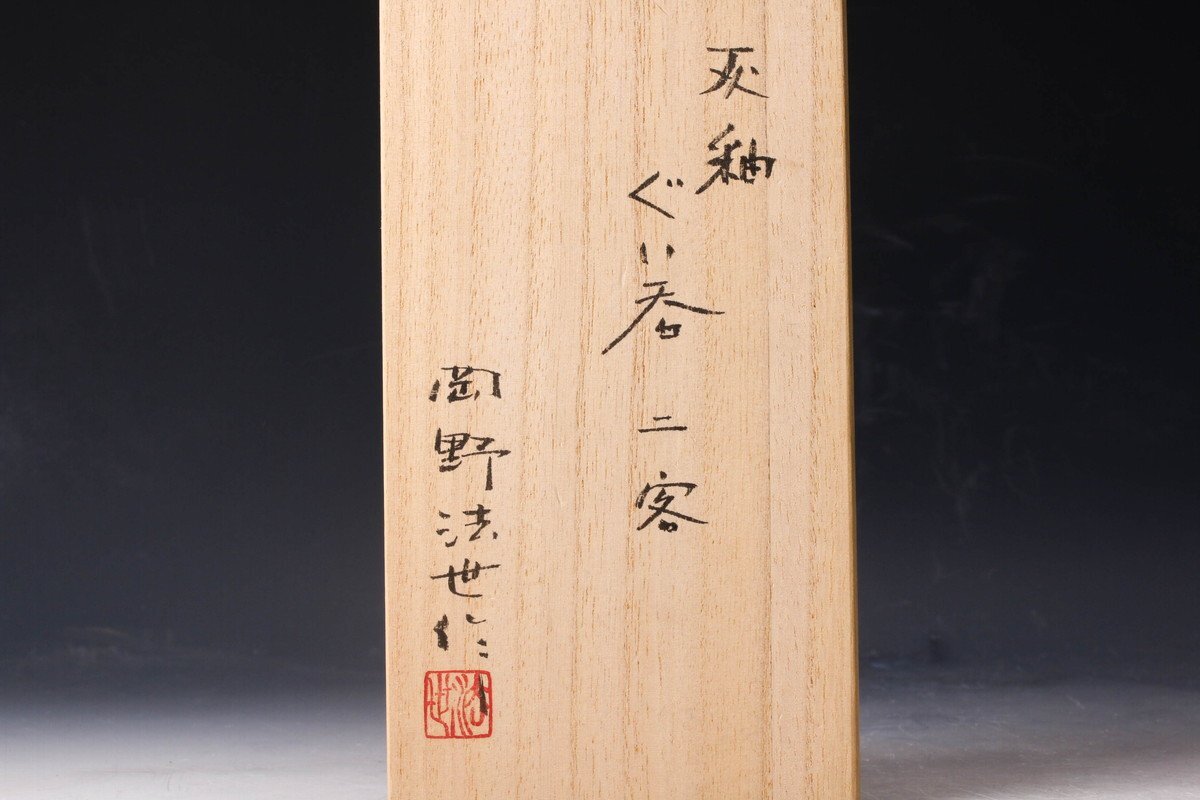 灰釉
ぐい呑 二客
岡野法世作
法世